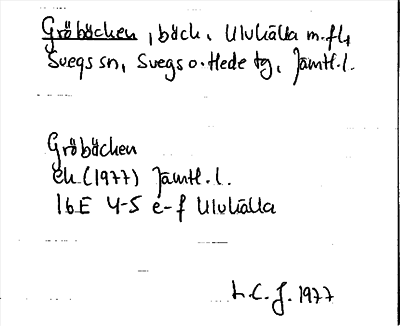 Gröbäcken, bäck, Ulvkälla m.fl,
Svegs sn, Svegs o. Hede tg, Jämtl.l.
Gröbäcken
ek (1977) Jämtl.l.
16E 4-5 e-f Ulvkälla
L.C.J. 1977